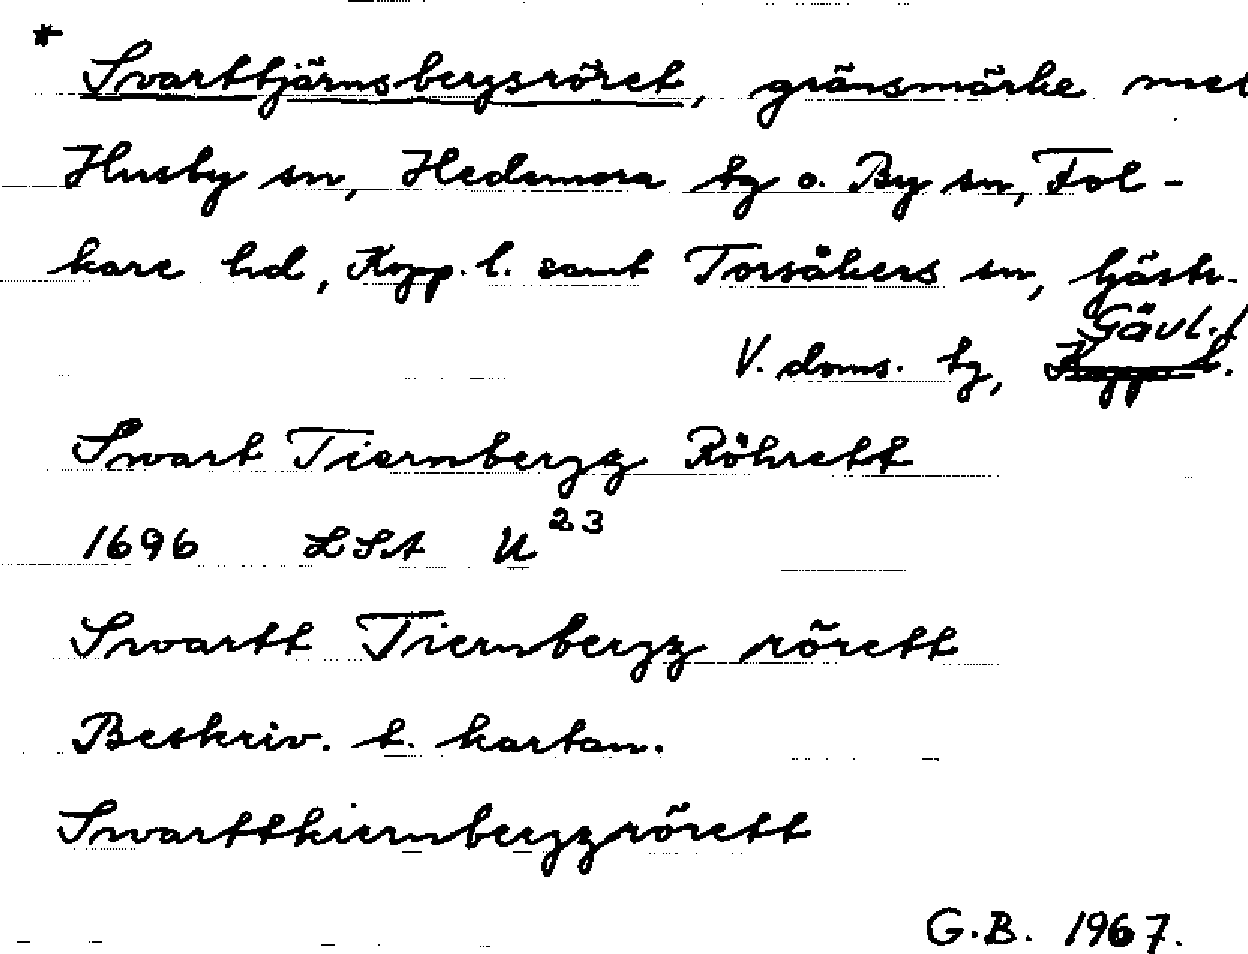 * Svarttjärnsbergsröret, gränsmärke met
Husby sn, Hedemora tg o. By sn, Fol-
kare hd, Kopp. l. samt Torsåkers sn, Gästr.
Gävl. l
V. doms. tg, Kopp. l.
Swart Tiernbergz Röhrett
1696 LSA U 23
Swartt Tiernbergz rörett
Beskriv. t. kartan.
Swarttkiernbergzrörett
G.B. 1967.